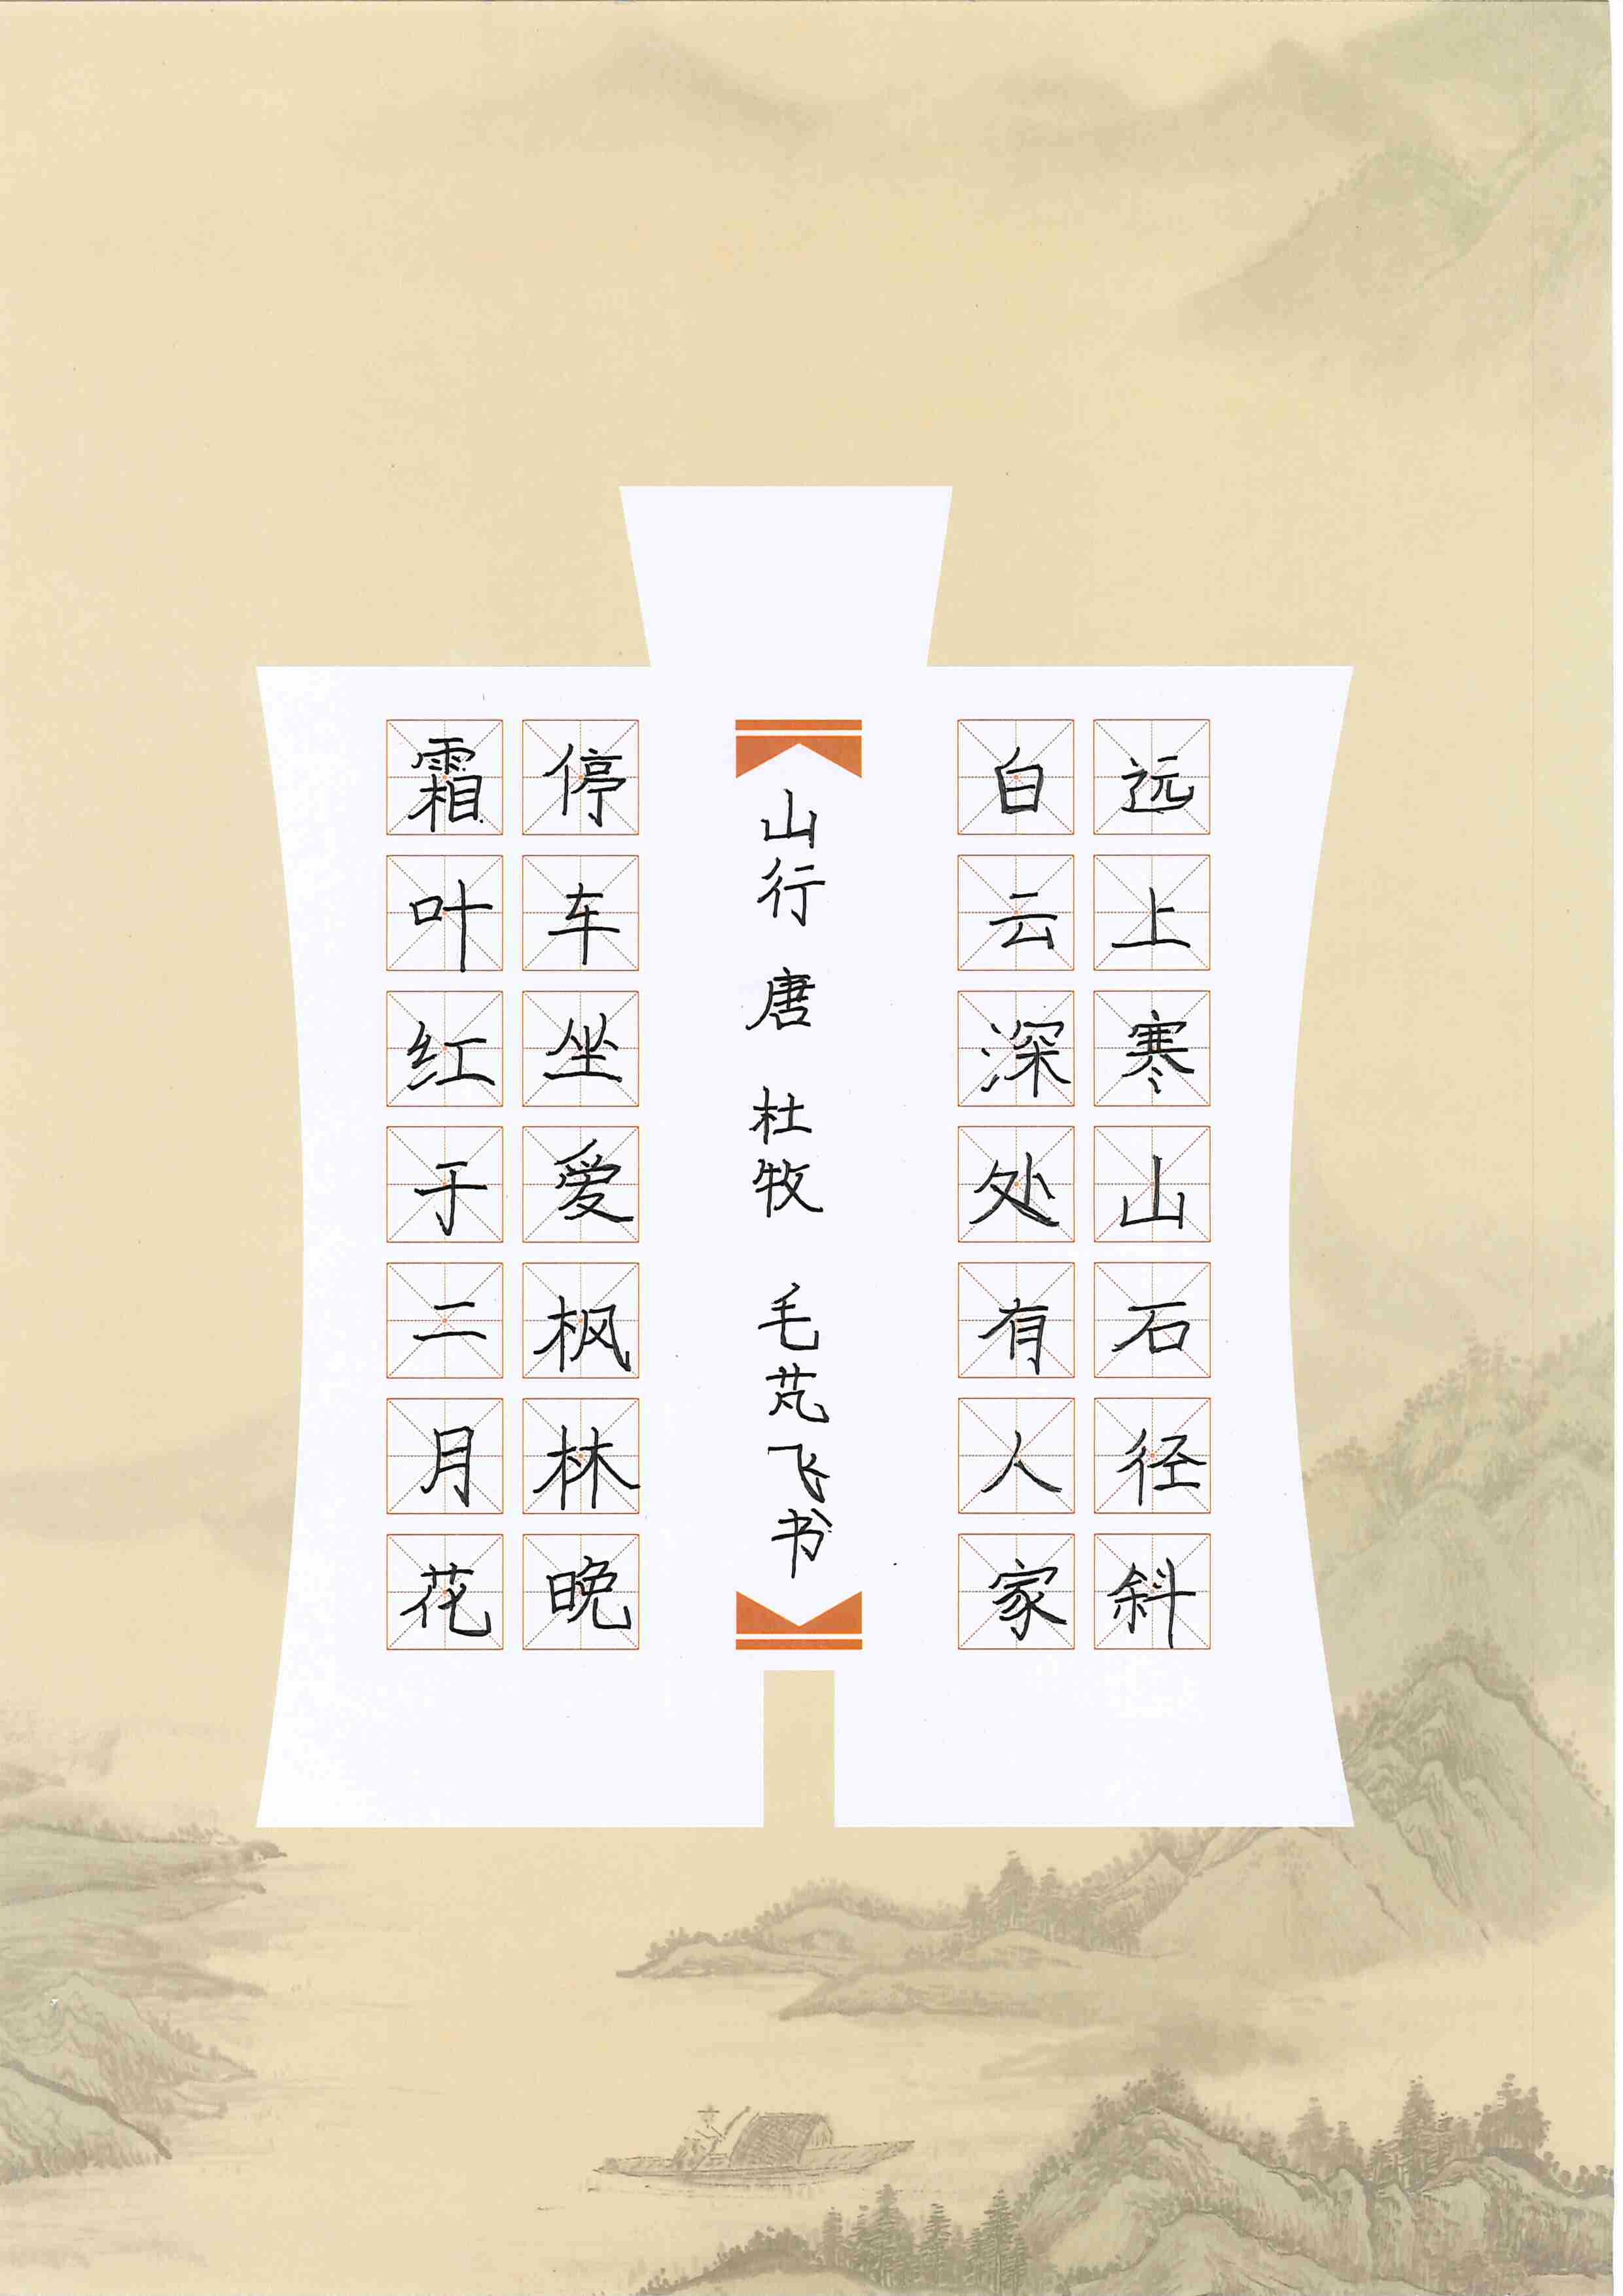 远上寒山石径斜
白云深处有人家
山行 唐 杜牧 毛芃飞书
停车坐爱枫林晚
霜叶红于二月花